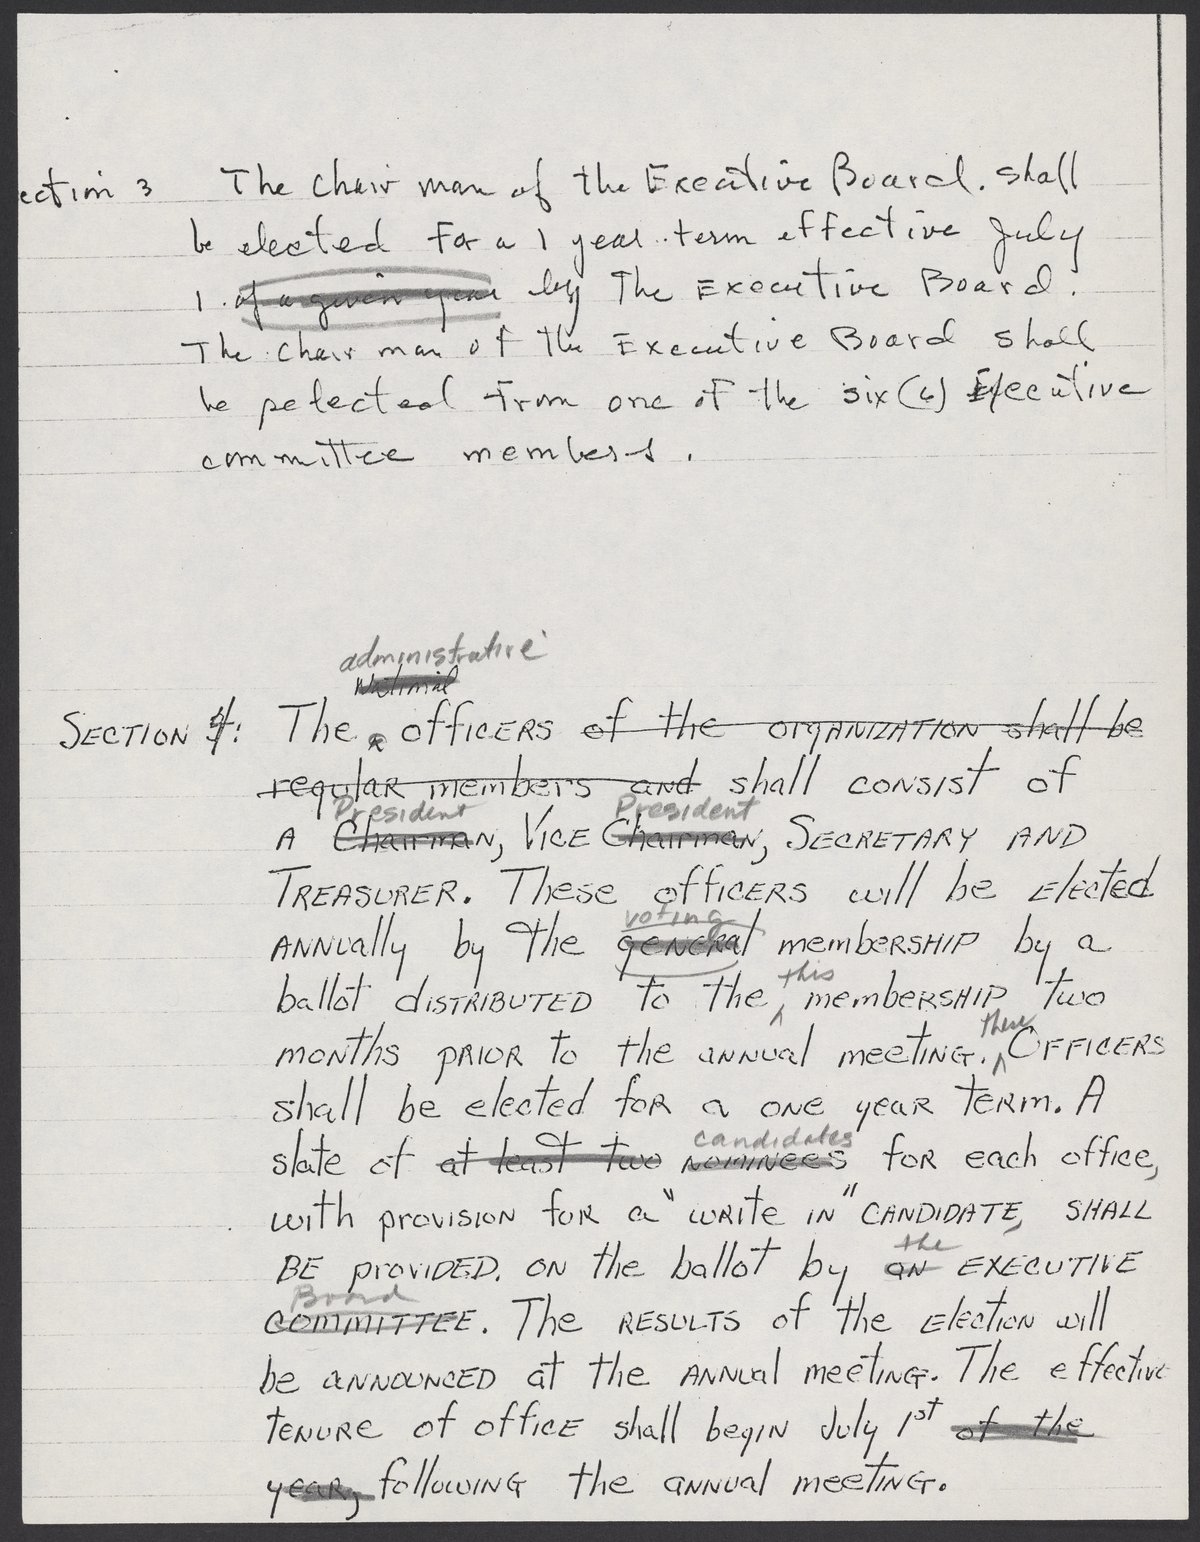 ection 3 The chair man of the Executive Board. shall
be elected for a 1 year term effective July
1. of a given year by The Executive Board.
The chair man of the Executive Board shall
be selected from one of the six (6) Executive
committee members.
administrative
National
SECTION 4: The ^ officers of the organization shall be
regular members and shall consist of
President President
A Chairman, Vice Chairman, Secretary and
Treasurer. These officers will be elected
voting
annually by the general membership by a
this
ballot distributed to the ^ membership two
these
months prior to the annual meeting. ^ Officers
shall be elected for a one year term. A
candidates
slate of at least two nominees for each office,
with provision for a "write in" candidate, shall
the
be provided. on the ballot by an Executive
Board
Committee. The results of the election will
be announced at the annual meeting. The effective
tenure of office shall begin July 1st of the
year, following the annual meeting.